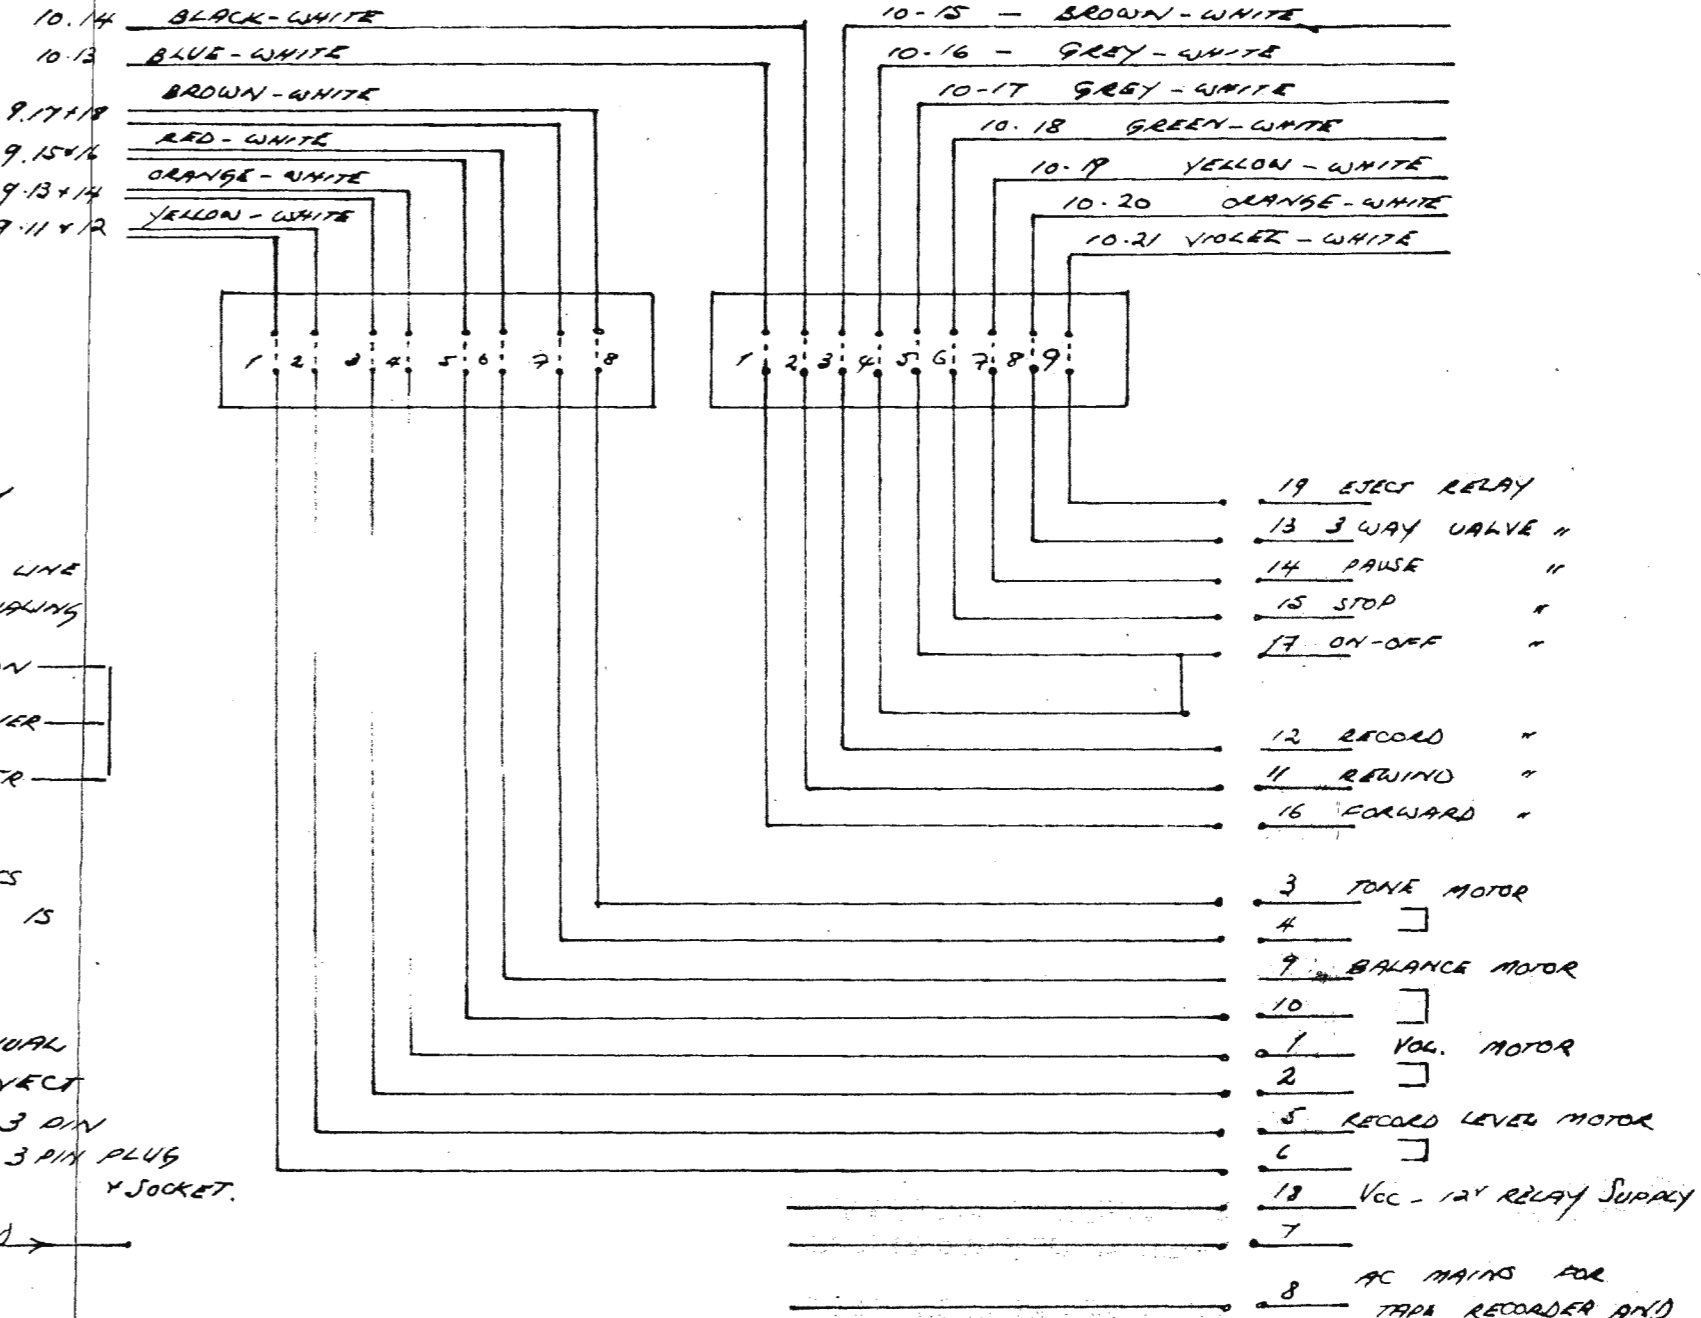 10.14 BLACK-WHITE
10.13 BLUE-WHITE
BROWN-WHITE
9.17+18
RED-WHITE
9.15+16
ORANGE-WHITE
9.13+14
YELLOW-WHITE
9.11+12
10-15 - BROWN-WHITE
10-16 - GREY-WHITE
10-17 GREY-WHITE
10.18 GREEN-WHITE
10.19 YELLOW-WHITE
10.20 ORANGE-WHITE
10.21 VIOLET-WHITE
1 2 3 4 5 6 7 8
1 2 3 4 5 6 7 8 9
19 EJECT RELAY
13 3 WAY VALVE "
14 PAUSE "
15 STOP "
17 ON-OFF "
12 RECORD "
11 REWIND "
16 FORWARD "
3 TONE MOTOR
4
9 BALANCE MOTOR
10
1 VOL. MOTOR
2
5 RECORD LEVEL MOTOR
6
18 VCC - 12V RELAY SUPPLY
7
8 AC MAINS FOR
TAPE RECORDER AND
LINE
IS
3 PIN
3 PIN PLUG
+ SOCKET.